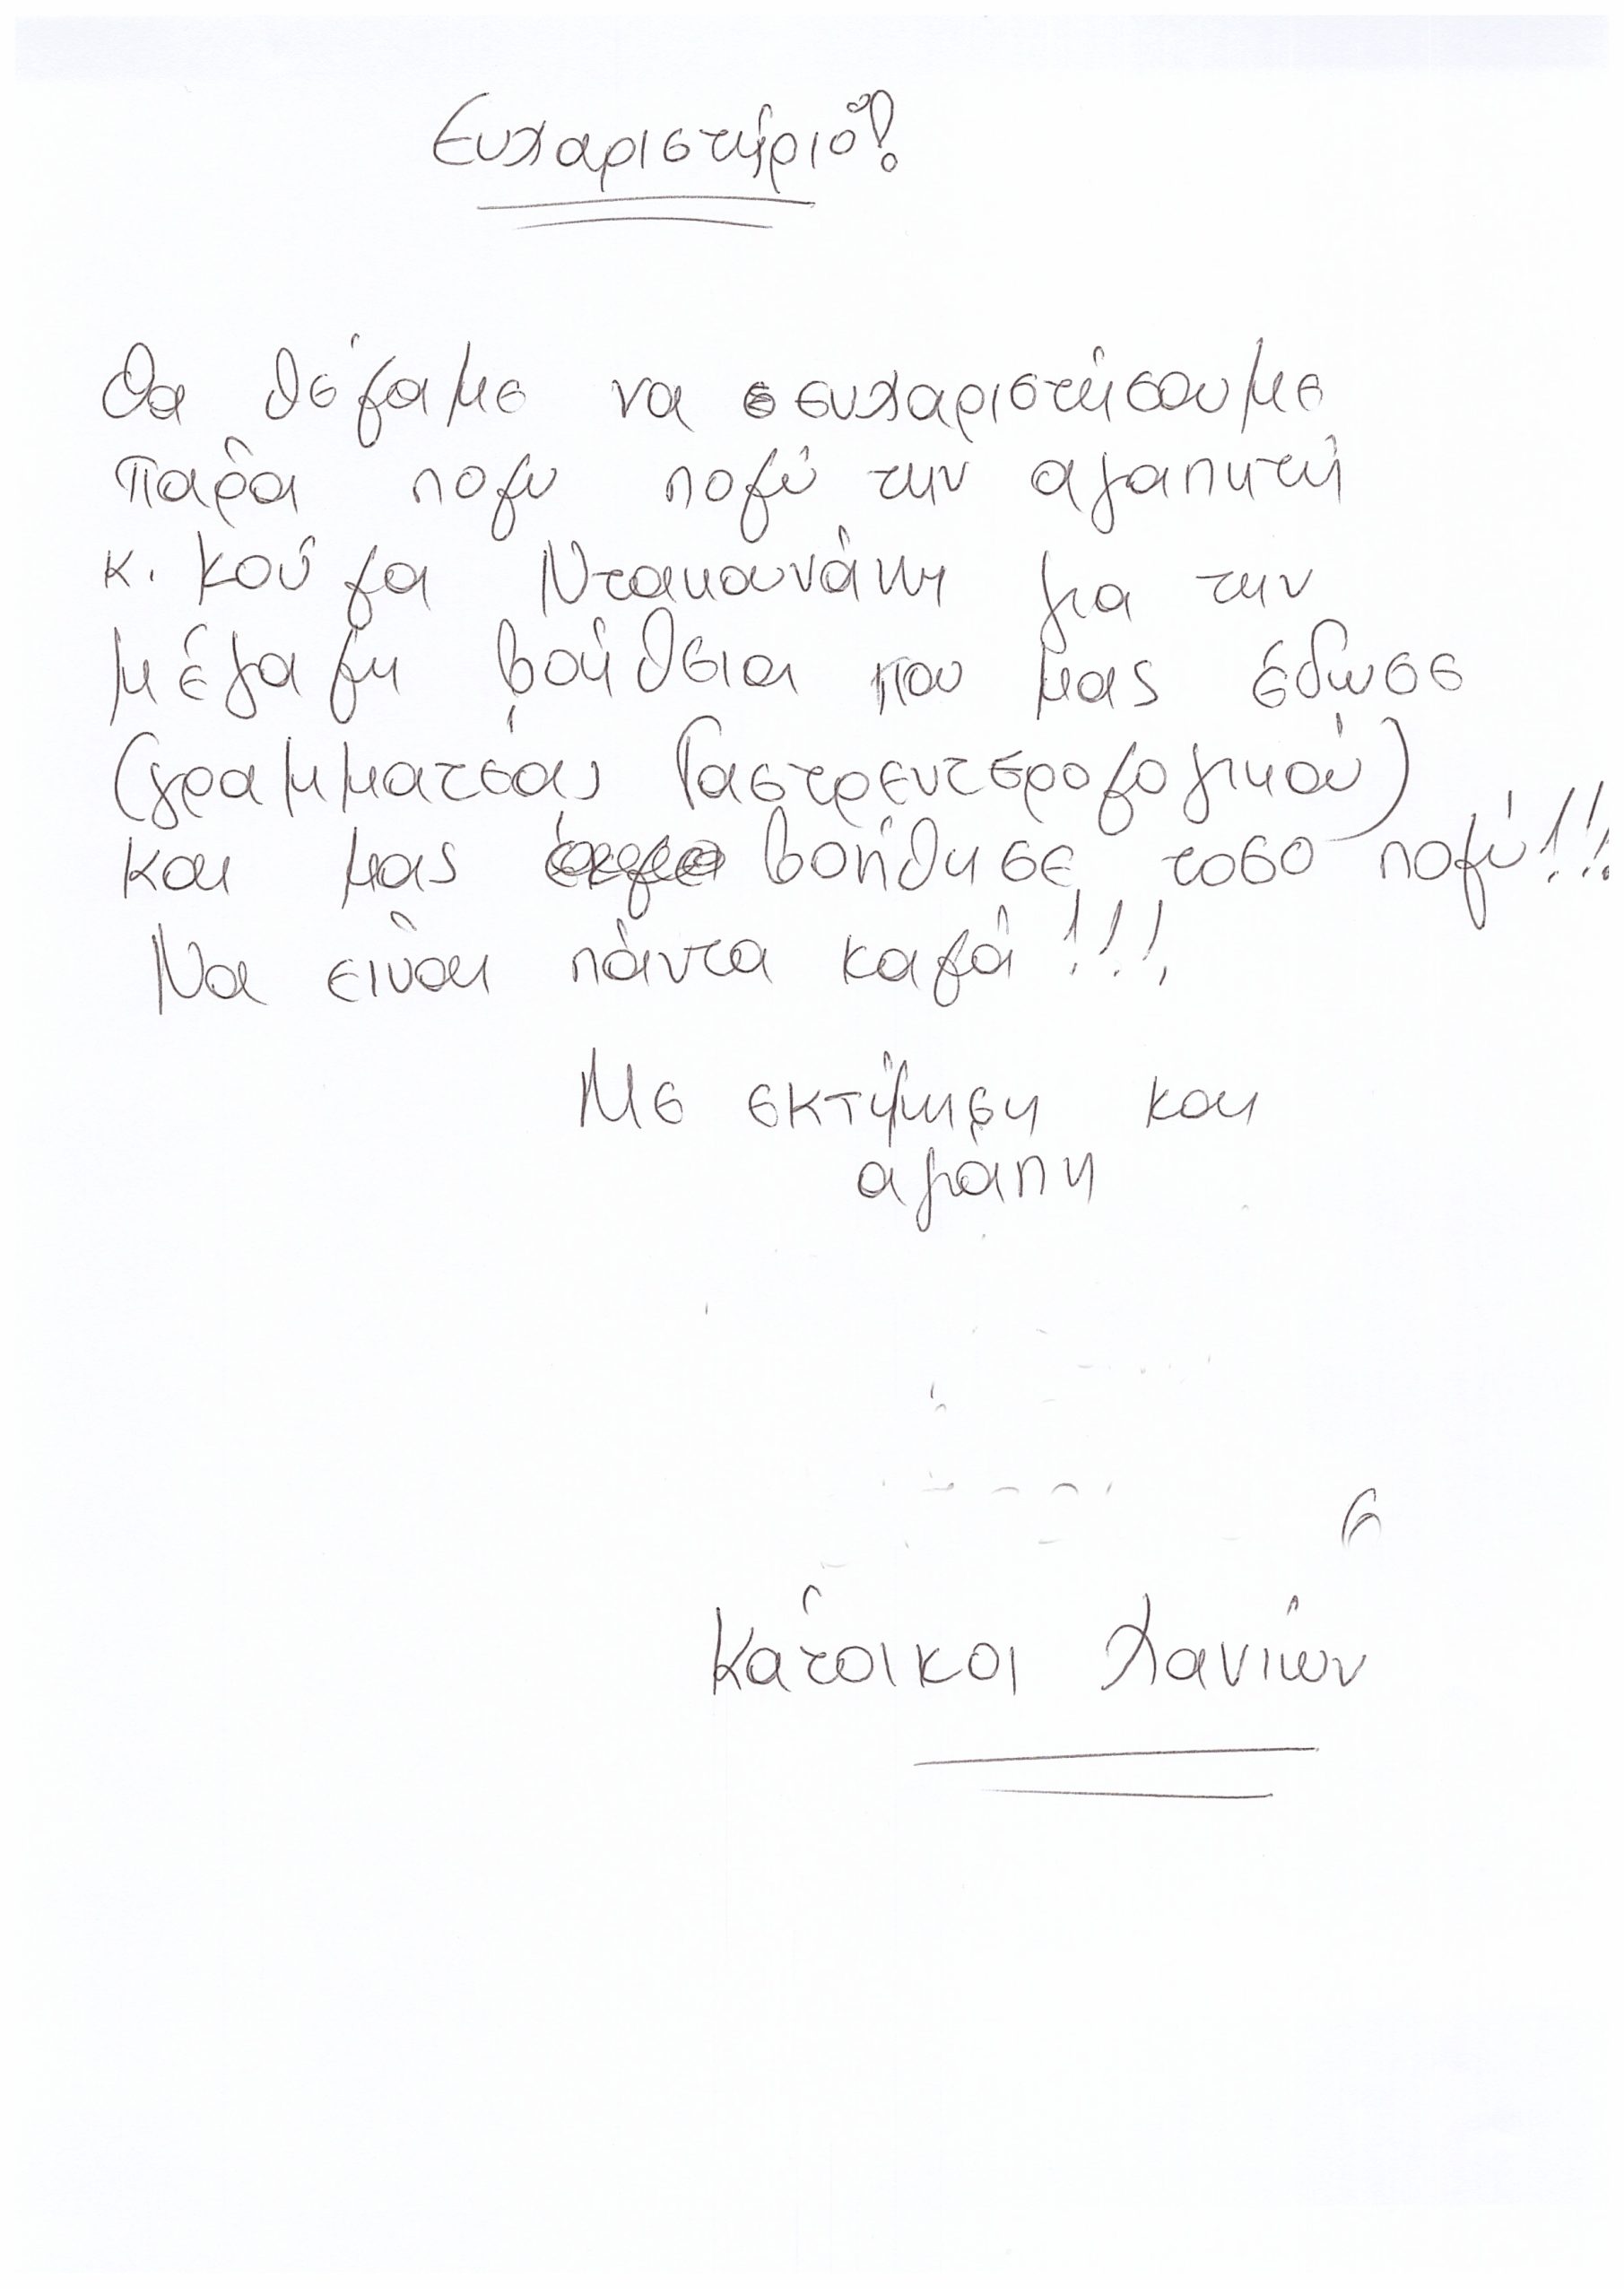 Ευχαριστήριο!
Θα θέλαμε να ευχαριστήσουμε
παρα πολυ πολύ την αγαπητή
κ. Κούλα Ντακουνάκη για την
μεγάλη βοήθεια που μας έδωσε
(γραμματέας Γαστρεντερολογικού)
και μας βοήθησε τοσο πολύ!!!
Να είναι πάντα καλά!!!
Με εκτίμηση και
αγάπη
Κάτοικοι Χανιών